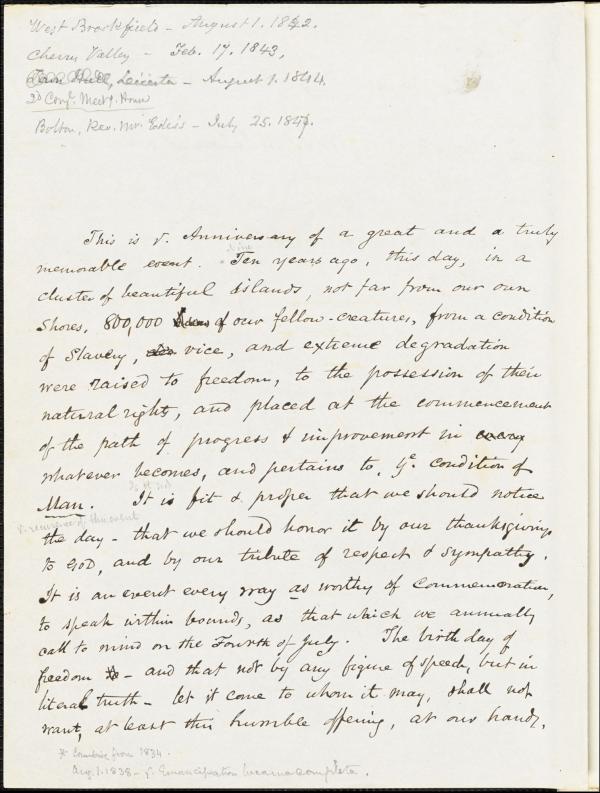 West Brookfield - August 1. 1842.
Cherry Valley - Feb. 17. 1843,
Town Hall, Leicester - August 1. 1844.
2d Congl. Meetg. House
Bolton, Rev. Mr. Edes's - July 25. 1847.
This is ye. Anniversary of a great and a truly
Nine
memorable event. Ten years ago, this day, in a
cluster of beautiful islands, not far from our own
shores, 800,000 of our fellow-creatures, from a condition
of Slavery, vice, and extreme degradation
were raised to freedom, to the possession of their
natural right, and placed at the commencement
of the path of progress & improvement in
whatever becomes, and pertains to, ye. condition of
Is it not
Man. It is fit & proper that we should notice
ye. recurrence of this event
the day - that we should honor it by our thanksgivings
to God, and by our tribute of respect & sympathy.
It is an event every way as worthy of Commemoration,
to speak within bounds, as that which we annually
call to mind on the Fourth of July. The birth day of
freedom - and that not by any figure of speech, but in
literal truth - let it come to whom it may, shall not
want, at least this humble offering, at our hands.
* Counting from 1834.
Aug. 1. 1838 - ye. Emancipation became complete.